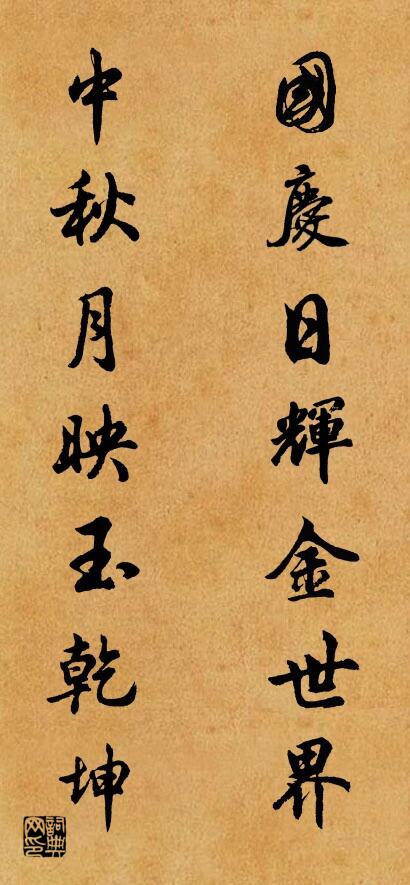 國慶日輝金世界
中秋月映玉乾坤
詞典网印